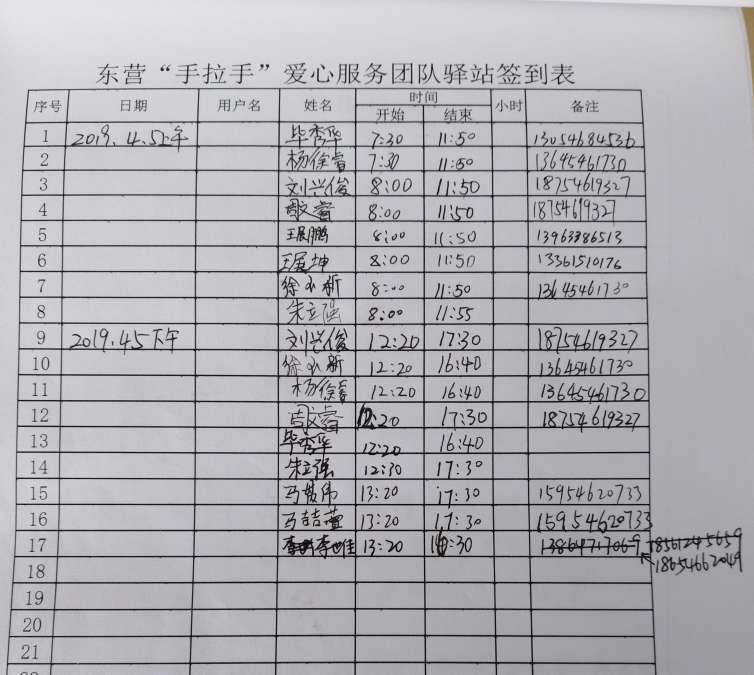 东营“手拉手”爱心服务团队驿站签到表
序号 日期 用户名 姓名 时间 小时 备注
开始 结束
1 2019.4.5上午 毕秀华 7:30 11:50 13054684536
2 杨徐睿 7:30 11:50 13645461730
3 刘兴俊 8:00 11:50 18754619327
4 周文睿 8:00 11:50 18754619327
5 王展鹏 8:00 11:50 13963386513
6 王展坤 8:00 11:50 13361510176
7 徐小新 8:00 11:50 13645461730
8 朱立强 8:00 11:55
9 2019.4.5下午 刘兴俊 12:20 17:30 18754619327
10 徐小新 12:20 16:40 13645461730
11 杨徐睿 12:20 16:40 13645461730
12 周文睿 12:20 17:30 18754619327
13 毕秀华 12:20 16:40
14 朱立强 12:30 17:30
15 13:20 17:30 15954620733
16 马喆萱 13:20 17:30 15954620733
17 李世佳 13:20 16:30 13864717069 18561245659
18654662049
18
19
20
21